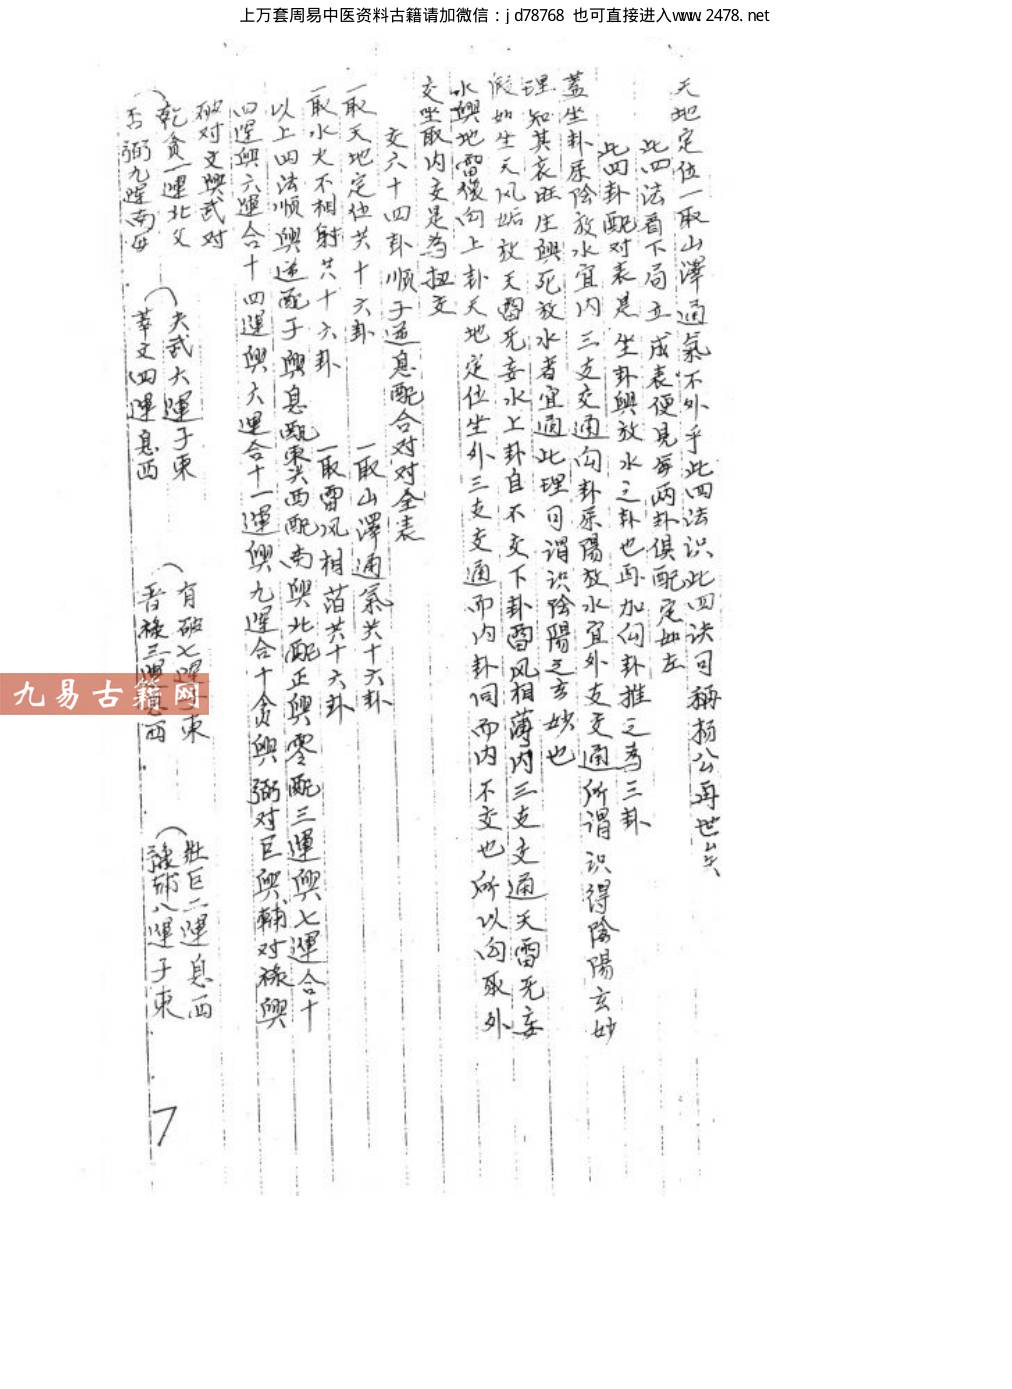 上万套周易中医资料古籍请加微信：jd78768 也可直接进入www.2478.net
天地定位一取山澤通氣不外乎此四法识此四诀可稱杨公再世矣
此四法看下局立成表便見每两卦俱配定如左
此四卦配对表是坐卦與放水之卦也再加勾卦推之為三卦
蓋坐卦屬陰放水宜内三支交通勾卦屬陽放水宜外支交通所谓识得陰陽玄妙
理知其衰旺生與死放水者宜通此理可谓识陰陽之玄妙也
假如坐天风姤放天雷无妄水上卦自不交下卦雷风相薄内三支交通天雷无妄
水與地雷復勾上卦天地定位坐外三支交通而内卦同而内不交也所以勾取外
交坐取内交是為扭交
交六十四卦顺子逆息配合对对全表
一取天地定位共十六卦 一取山澤通氣共十六卦
一取水火不相射共十六卦 一取雷风相薄共十六卦
以上四法顺與逆配子與息配東共西配南與北配正與零配三運與七運合十
四運與六運合十四運與六運合十一運與九運合十贪與弼对巨與輔对祿與
破对文與武对
乾贪一運北父
否弼九運南母
夬武六運子東
萃文四運息西
有破七運子東
晋祿三運息西
壯巨二運息西
輔八運子東
7
九易古籍网